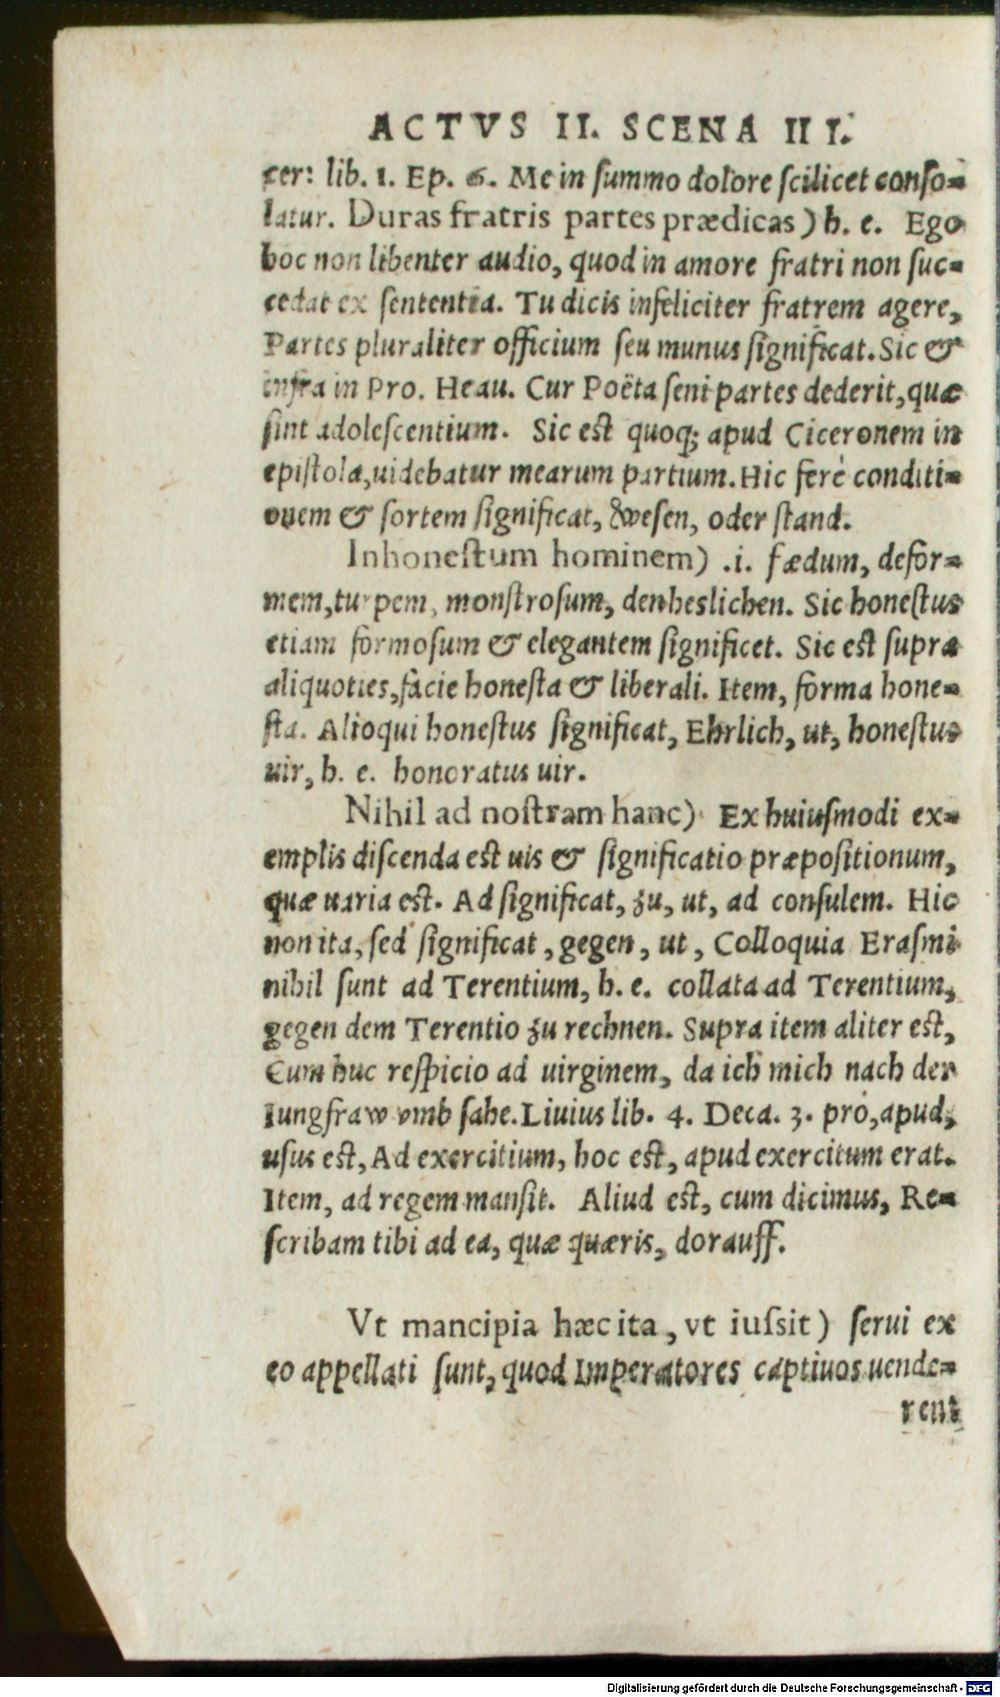 ACTVS II. SCENA III.
cer: lib. 1. Ep. 6. Me in summo dolore scilicet conso-
latur. Duras fratris partes prædicas) h. e. Ego
hoc non libenter audio, quod in amore fratri non suc-
cedat ex sententia. Tu dicis infeliciter fratrem agere,
Partes pluraliter officium seu munus significat. Sic &
infra in Pro. Heau. Cur Poëta seni partes dederit, quæ
sint adolescentium. Sic est quoq; apud Ciceronem in
epistola, uidebatur mearum partium. Hic ferè conditi-
onem & sortem significat, wesen, oder stand.
Inhonestum hominem) .i. fædum, defor-
mem, turpem, monstrosum, den heslichen. Sic honestus
etiam formosum & elegantem significet. Sic est supra
aliquoties, facie honesta & liberali. Item, forma hone-
sta. Alioqui honestus significat, Ehrlich, ut, honestus
uir, h. e. honoratus uir.
Nihil ad nostram hanc) Ex huiusmodi ex-
emplis discenda est uis & significatio præpositionum,
quæ uaria est. Ad significat, zu, ut, ad consulem. Hic
non ita, sed significat, gegen, ut, Colloquia Erasmi
nihil sunt ad Terentium, h. e. collata ad Terentium,
gegen dem Terentio zu rechnen. Supra item aliter est,
Cum huc respicio ad uirginem, da ich mich nach der
Iungfraw vmb sahe. Liuius lib. 4. Deca. 3. pro, apud,
usus est, Ad exercitium, hoc est, apud exercitum erat.
Item, ad regem mansit. Aliud est, cum dicimus, Re-
scribam tibi ad ea, quæ quæris, dorauff.
Vt mancipia hæc ita, vt iussit) serui ex
eo appellati sunt, quod Imperatores captiuos uende-
rent
Digitalisierung gefördert durch die Deutsche Forschungsgemeinschaft - DFG